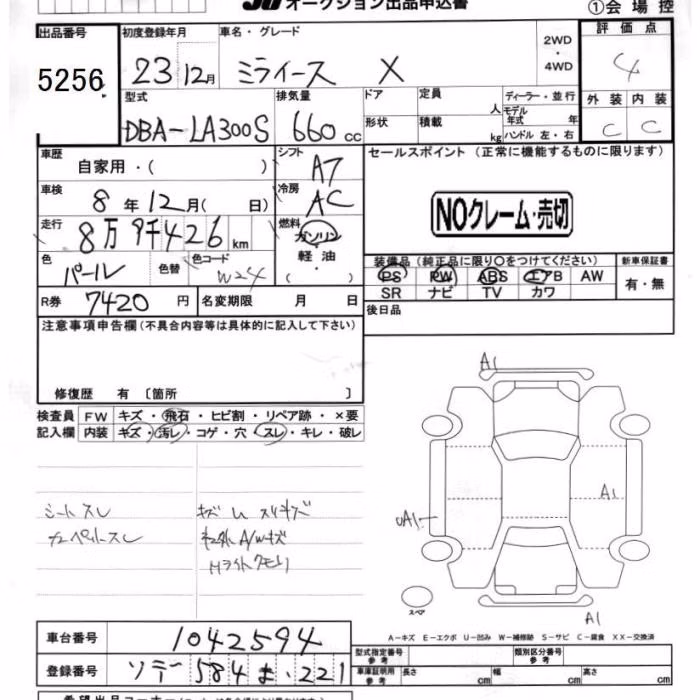 オークション出品申込書
①会場控
出品番号 初度登録年月 車名・グレード 2WD・4WD 評価点
5256 23 12月 ミライース X 4
型式 排気量 ドア 定員 人 ディーラー・並行 外装 内装
DBA-LA300S 660cc 形状 積載 kg モデル年式 年 ハンドル 左・右 C C
車歴 自家用・( ) シフト A7 セールスポイント (正常に機能するものに限ります)
車検 8年12月( 日) 冷房 AC
NOクレーム・売切
走行 8万9千426km 燃料 ガソリン・軽油・( )
色 パール 色替 色コード W24
装備品 (純正品に限り○をつけてください) 新車保証書
PS PW ABS エアB AW 有・無
SR ナビ TV カワ
R券 7420円 名変期限 月 日 後日品
注意事項申告欄 (不具合内容等は具体的に記入して下さい)
修復歴 有 〔箇所 〕
検査員記入欄 FW キズ・飛石・ヒビ割・リペア跡・×要
内装 キズ・汚レ・コゲ・穴・スレ・キレ・破レ
シートスレ
カーペットスレ
A1
A1
A1
スペア
A1
A-キズ E-エクボ U-凹み W-補修跡 S-サビ C-腐食 XX-交換済
車台番号 1042594 型式指定番号 参考 類別区分番号 参考
登録番号 584 ま 221 車庫証明用 参考 長さ cm 幅 cm 高さ cm